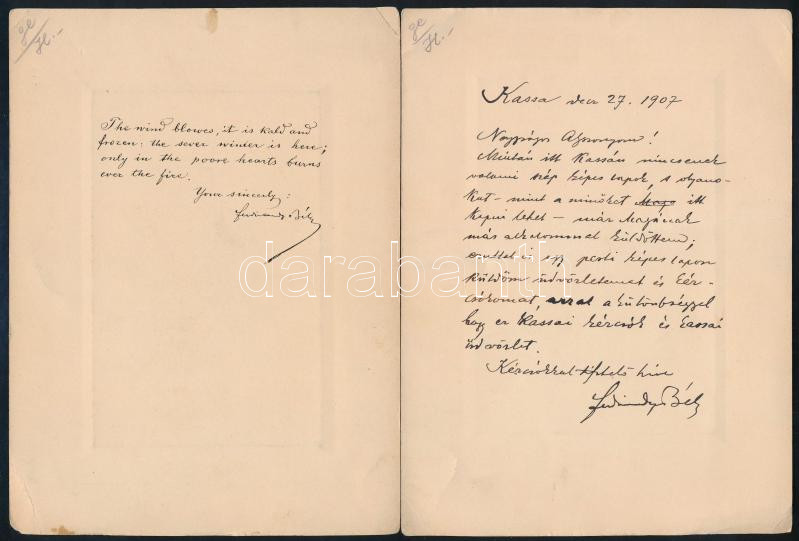 The wind blowes, it is kald and
frozen: the sever winter is here;
only in the poore hearts burns
ever the fire.
Your sincerely:
Ferdinandy Béla
Kassa dec 27. 1907
Nagyságos Asszonyom!
Miután itt Kassán nincsenek
valami szép képes lapok, s olyano-
kat – mint a minőket itt
kapni lehet – már Magának
más alkalommal küldöttem;
ezuttal is egy pesti képes lapon
küldöm üdvözletemet és kéz-
csókomat, azzal a külömbséggel
hogy ez kassai kézcsók és kassai
üdvözlet.
Kézcsókkal tisztelő hive
Ferdinandy Béla
darabanth